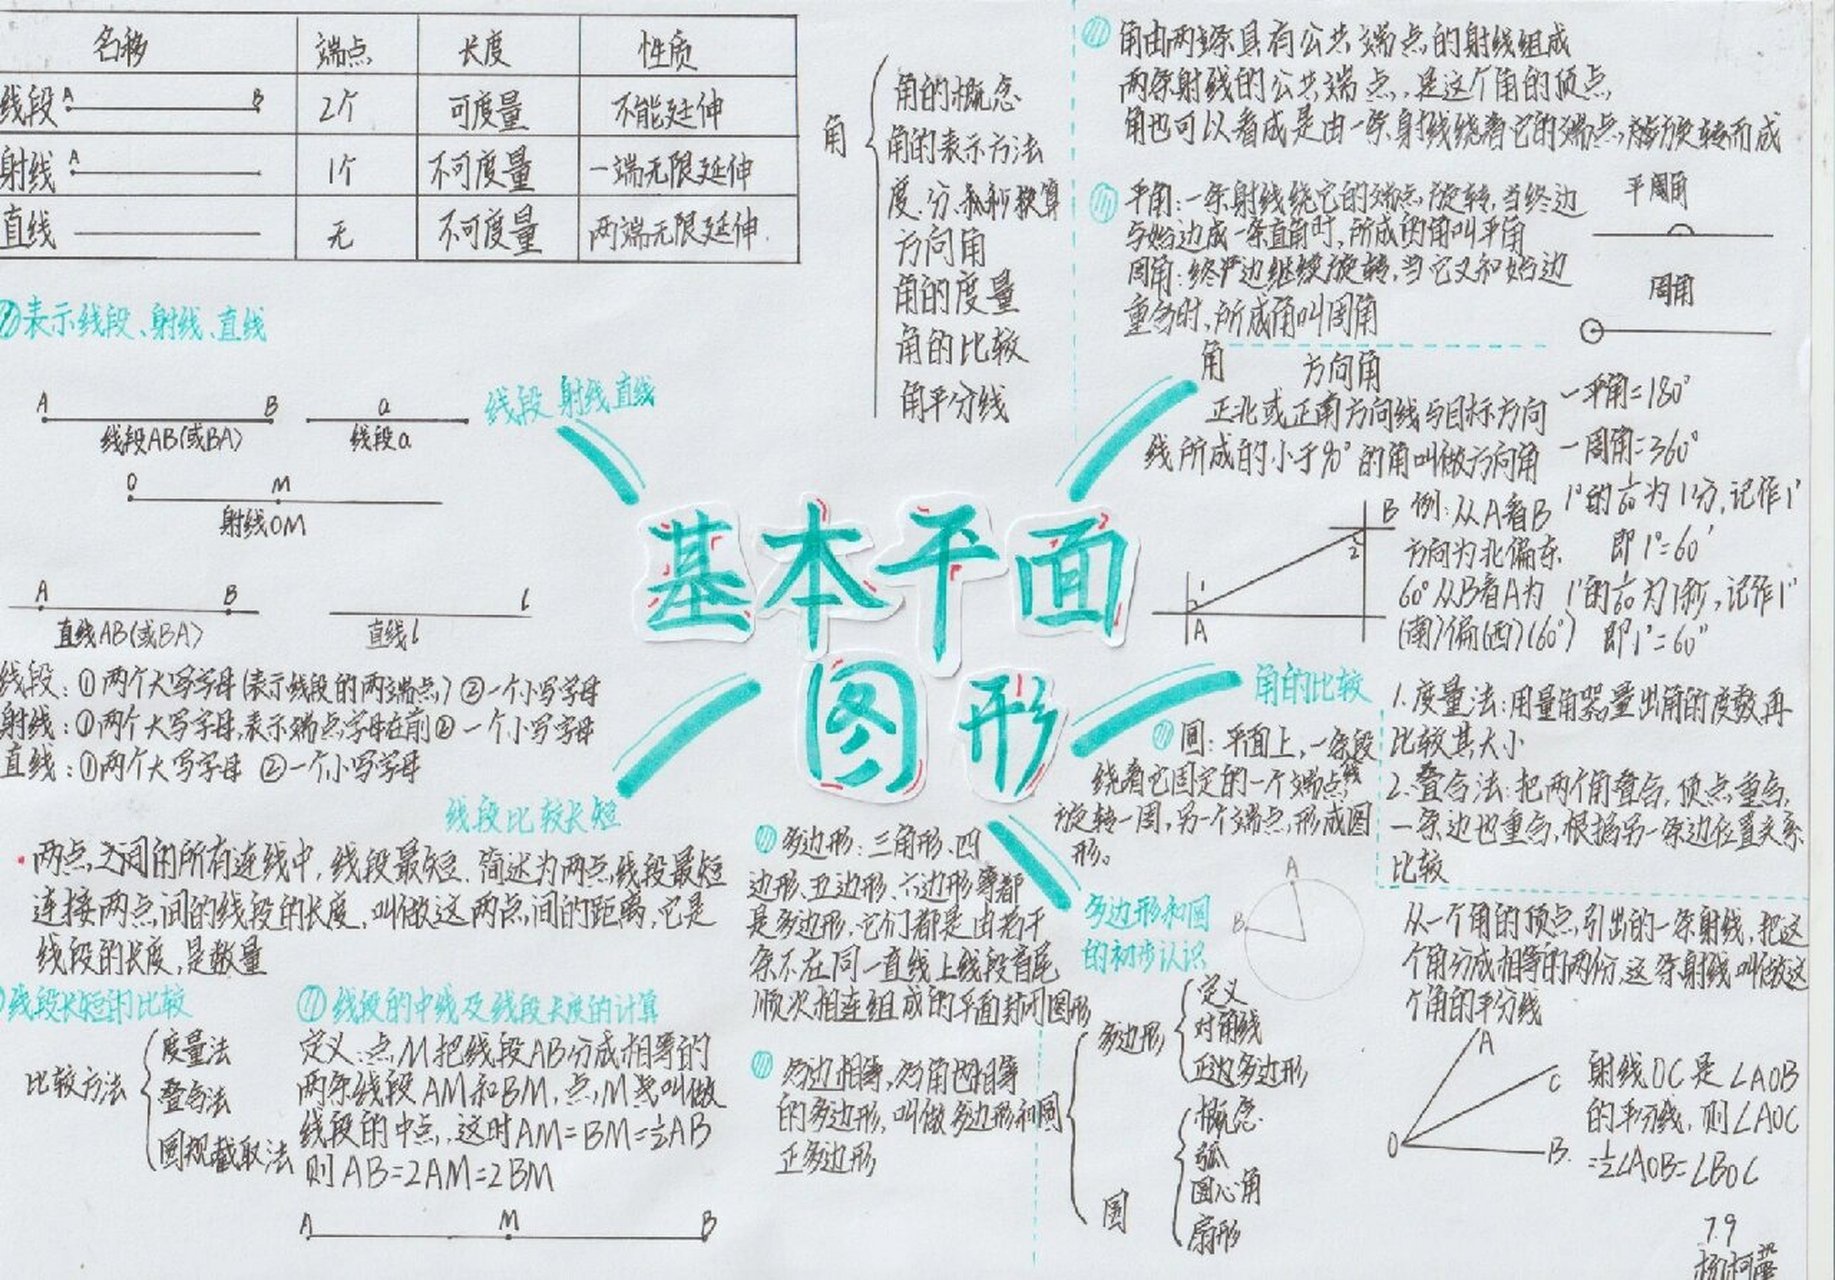 名称 端点 长度 性质
线段 A B 2个 可度量 不能延伸
射线 A 1个 不可度量 一端无限延伸
直线 无 不可度量 两端无限延伸.
②表示线段、射线、直线
A B a
线段AB(或BA) 线段a
O M
射线OM
A B l
直线AB(或BA) 直线l
线段：①两个大写字母(表示线段的两端点) ②一个小写字母
射线：①两个大写字母,表示端点字母在前② 一个小写字母
直线：①两个大写字母 ②一个小写字母
线段 射线 直线
角
角的概念
角的表示方法
度.分.秒换算
方向角
角的度量
角的比较
角平分线
角由两条具有公共端点的射线组成
两条射线的公共端点,是这个角的顶点,
角也可以看成是由一条射线绕着它的端点旋转而成
平角：一条射线绕它的端点旋转,当终边
与始边成一条直角时,所成的角叫平角
周角：终边继续旋转,当它又和始边
重合时,所成角叫周角
平周角
周角
角 方向角
正北或正南方向线与目标方向
线所成的小于90°的角叫做方向角
一平角=180°
一周角=360°
1°的1/60为1分,记作1′
即1°=60′
1′的1/60为1秒,记作1″
即1′=60″
B
2
1
A
例:从A看B
方向为北偏东
60°从B看A为
(南)偏(西)(60°)
基本平面
图形
线段比较长短
两点之间的所有连线中,线段最短.简述为两点线段最短
连接两点间的线段的长度,叫做这两点间的距离,它是
线段的长度,是数量
线段长短的比较
比较方法
度量法
叠合法
圆规截取法
线段的中线及线段长度的计算
定义:点M把线段AB分成相等的
两条线段AM和BM,点M叫做
线段的中点,这时AM=BM=½AB
则AB=2AM=2BM
A M B
角的比较
1.度量法:用量角器量出角的度数再
比较其大小
2.叠合法:把两个角叠合,顶点重合,
一条边也重合,根据另一条边位置关系
比较
圆：平面上,一条线段
绕着它固定的一个端点
旋转一周,另一个端点形成图
形。
多边形：三角形、四
边形、五边形、六边形等都
是多边形,它们都是由若干
条不在同一直线上线段首尾
顺次相连组成的平面封闭图形
各边相等,各角也相等
的多边形,叫做
正多边形
多边形和圆
的初步认识
A
B
多边形和圆
多边形
定义
对角线
正边多边形
圆
概念
弧
圆心角
扇形
从一个角的顶点引出的一条射线,把这
个角分成相等的两份,这条射线叫做这
个角的平分线
A
C
O
B
射线OC是∠AOB
的平分线,则∠AOC
=½∠AOB=∠BOC
7.9